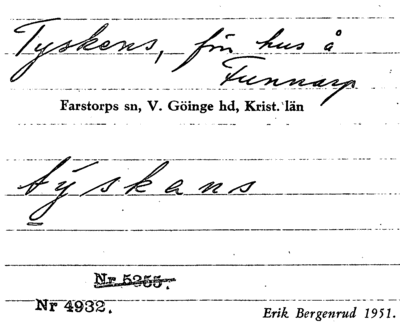 Tyskens, förr hus å
Funnarp
Farstorps sn, V. Göinge hd, Krist. län
týskans
Nr 5255.
Nr 4932.
Erik Bergenrud 1951.